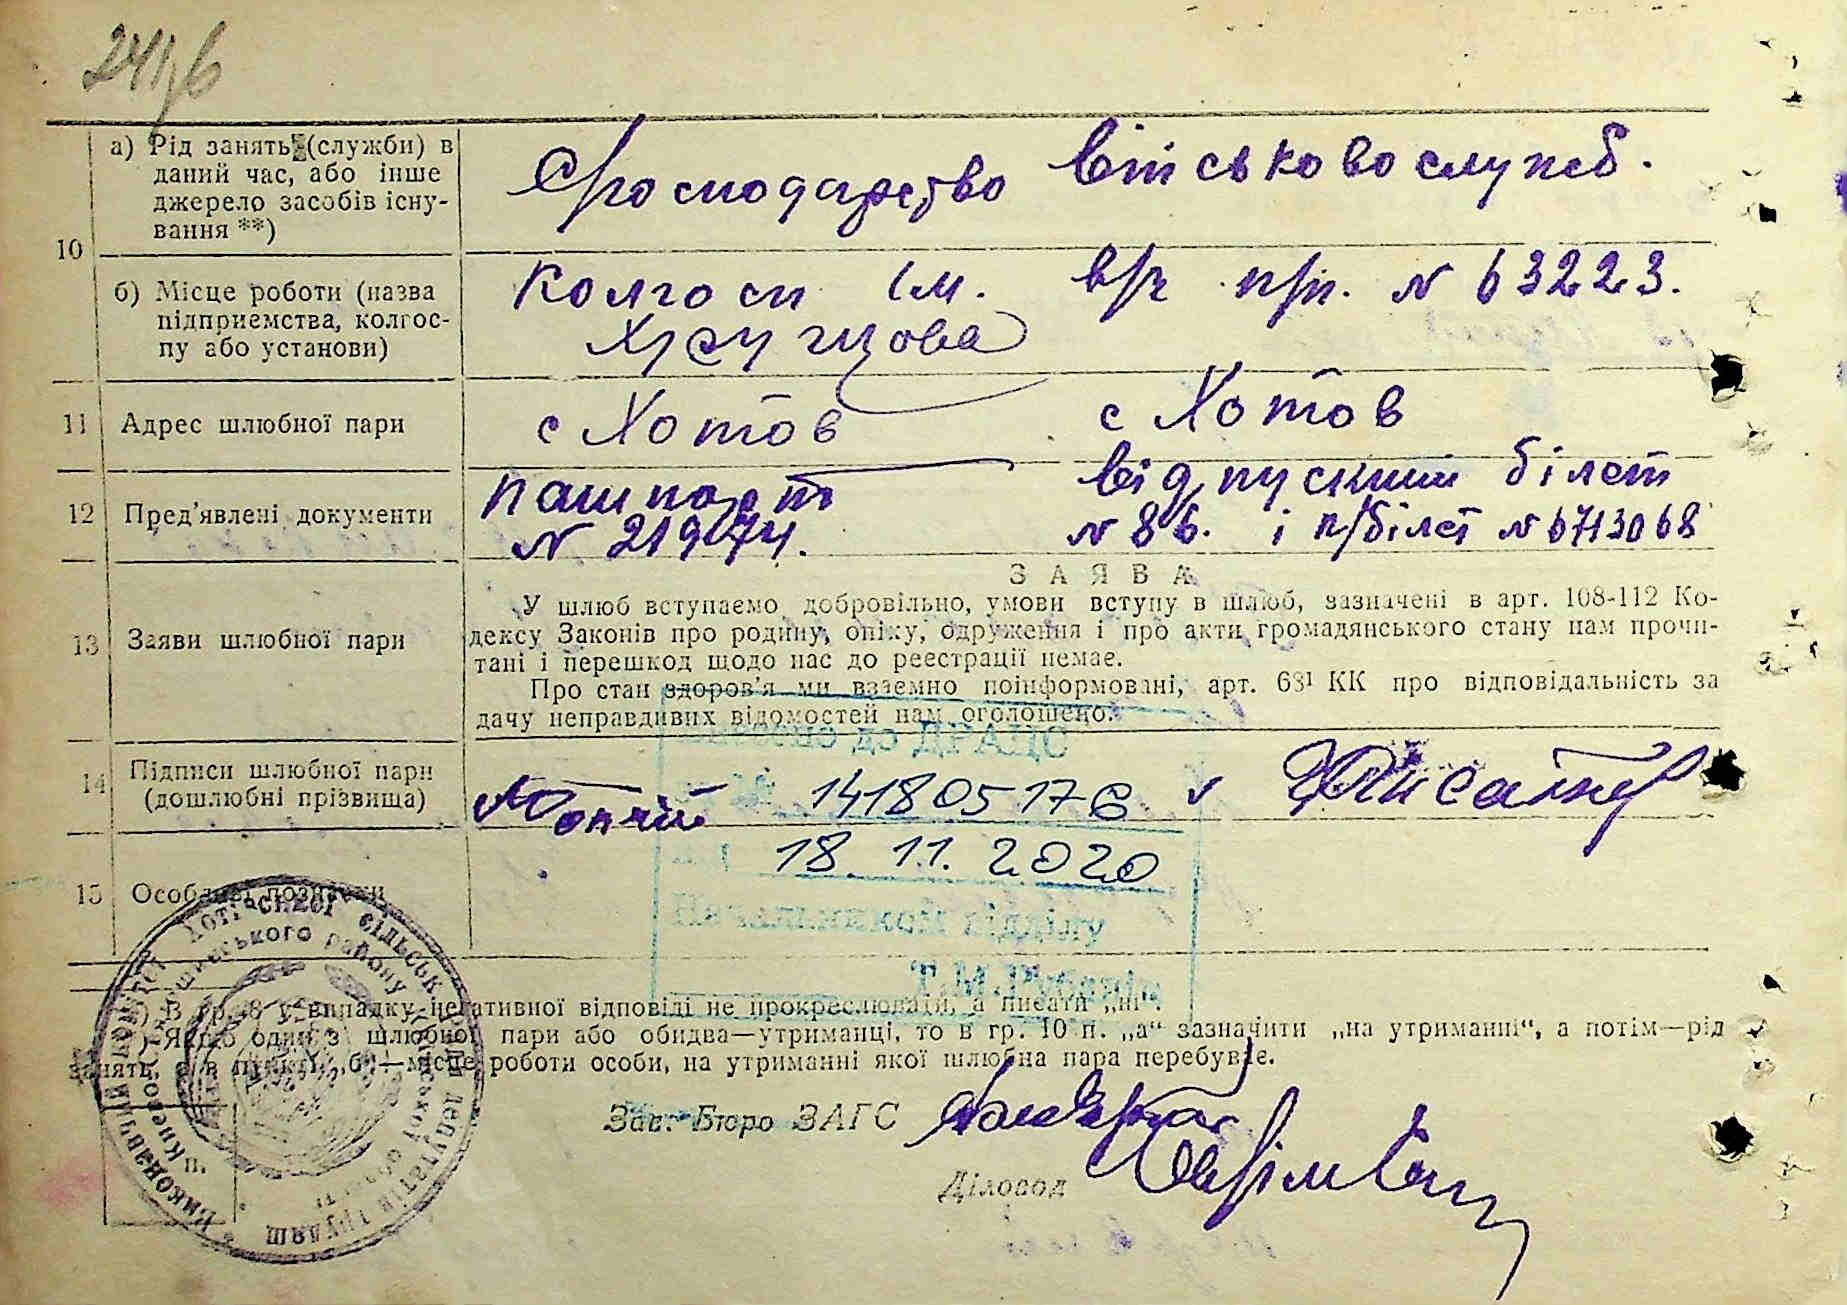 241/6
10
а) Рід занять (служби) в
даний час, або інше
джерело засобів існу-
вання **)
військовослужб.
б) Місце роботи (назва
підприємства, колгос-
пу або установи)
Колгосп ім.
Хрущова
в/ч п/п. N 63223.
11 Адрес шлюбної пари
с Хотов
с Хотов
12 Пред'явлені документи
пашпорт
N 21974.
відпускний білет
N 86. і в/білет N 6713068
ЗАЯВА
13 Заяви шлюбної пари
У шлюб вступаємо добровільно, умови вступу в шлюб, зазначені в арт. 108-112 Ко-
дексу Законів про родину, опіку, одруження і про акти громадянського стану нам прочи-
тані і перешкод щодо нас до реєстрації немає.
Про стан здоров'я ми взаємно поінформовані, арт. 68¹ КК про відповідальність за
дачу неправдивих відомостей нам оголошено.
14 Підписи шлюбної пари
(дошлюбні прізвища)
до ДРАЦС
14180517
18.11.2020
Начальником відділу
Т.М.
15 Особливі позначки
*) В гр. 8 у випадку негативної відповіді не прокреслювати, а писати „ні".
**) Якщо один з шлюбної пари або обидва—утриманці, то в гр. 10 п. „а" зазначити „на утриманні", а потім—рід
занять, а в пункті „б"—місце роботи особи, на утриманні якої шлюбна пара перебуває.
Зав. Бюро ЗАГС
Діловод
Виконавчий комітет Хотівської сільської ради депутатів трудящ
Києво-Святошинського району Київської області